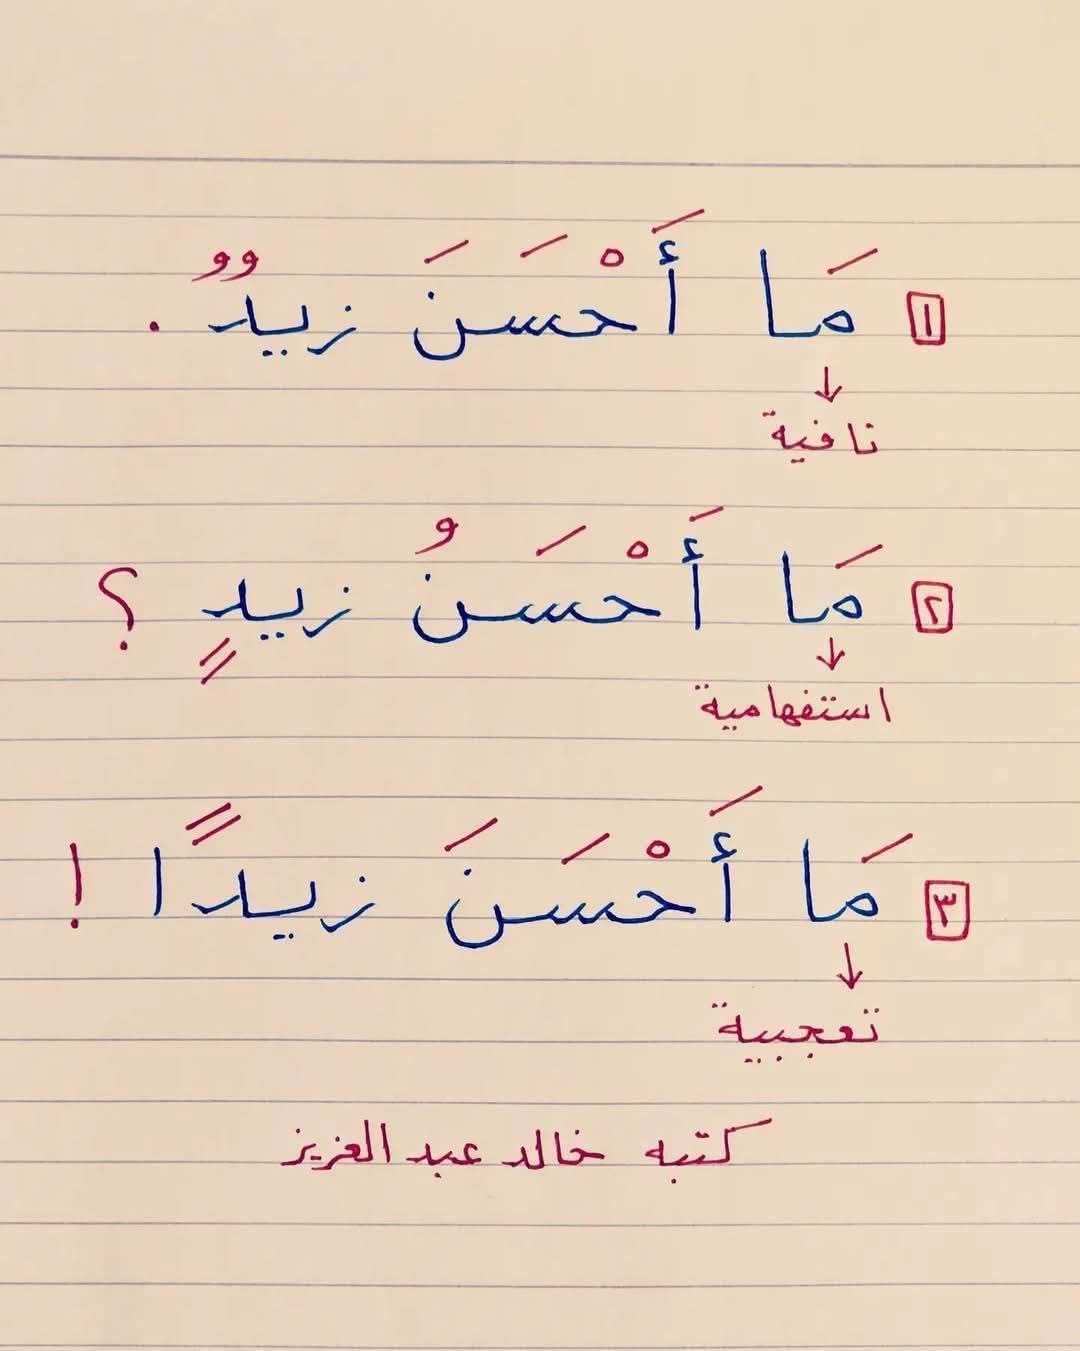 ١ مَا أَحْسَنَ زيدٌ .
↓
نافية
٢ مَا أَحْسَنُ زيدٍ ؟
↓
استفهامية
٣ مَا أَحْسَنَ زيدًا !
↓
تعجبية
كتبه خالد عبد العزيز